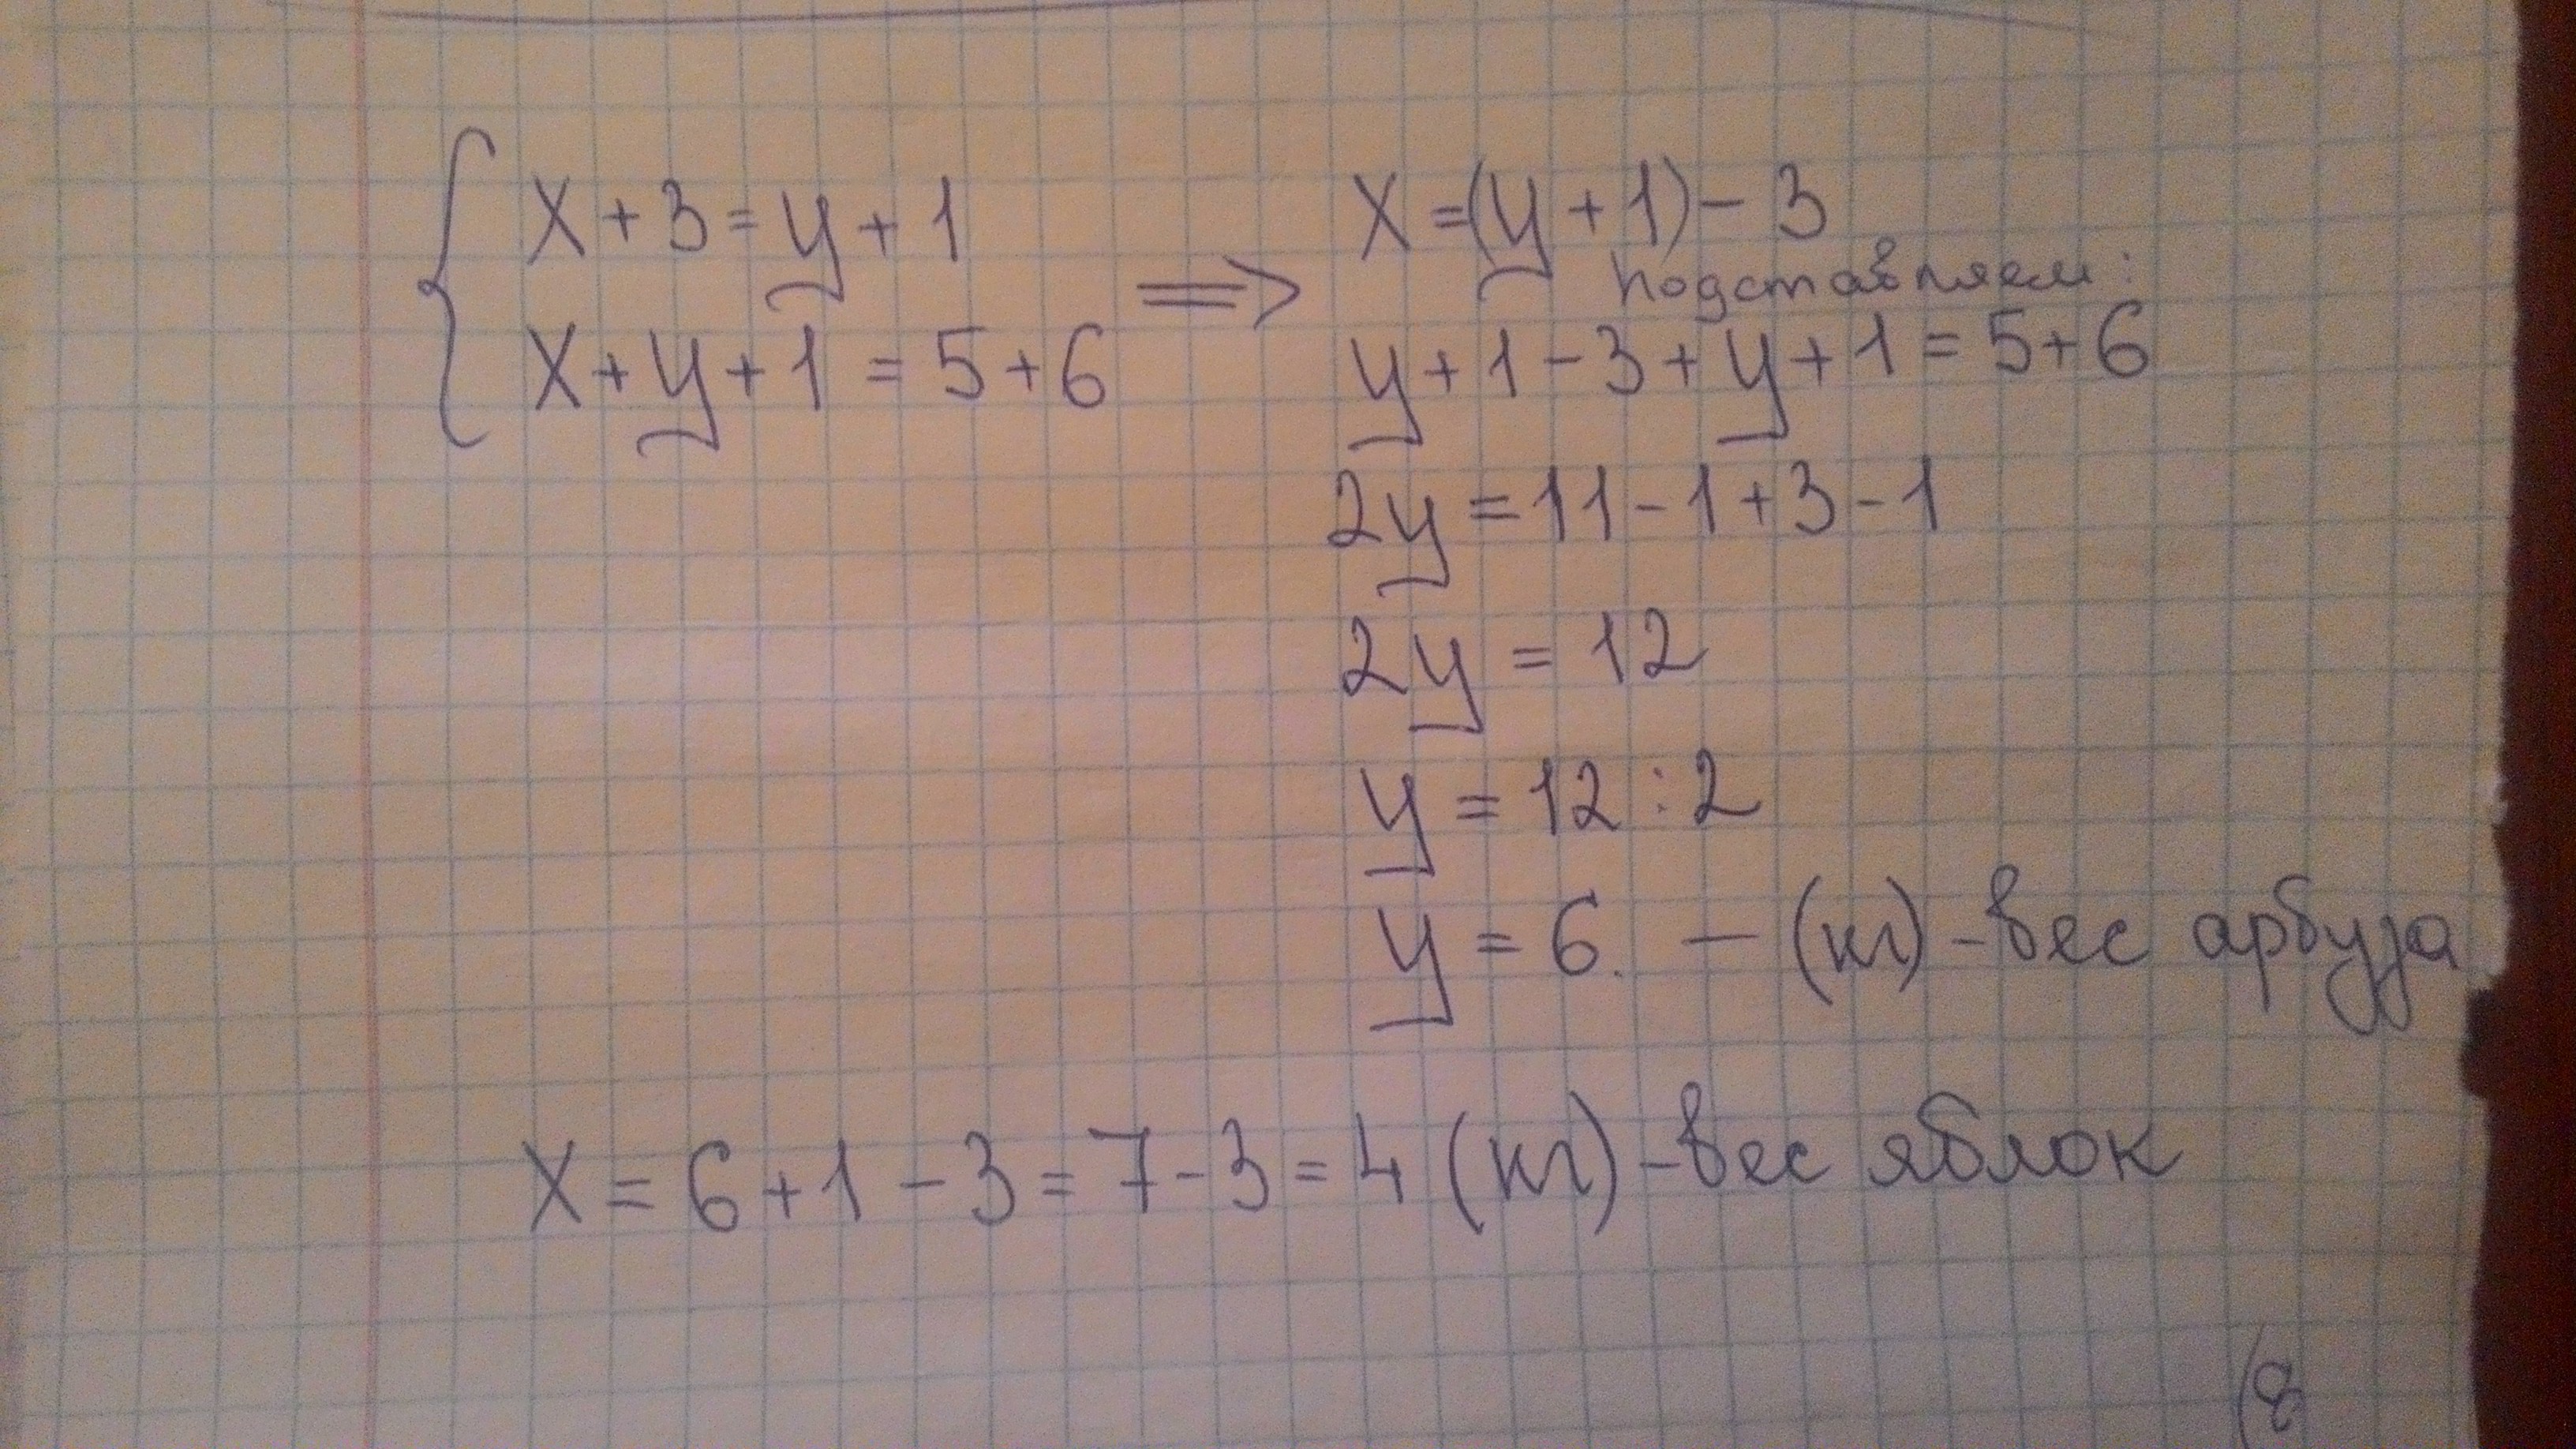 x + 3 = y + 1
x + y + 1 = 5 + 6
⟹
x = (y + 1) - 3
подставляем:
y + 1 - 3 + y + 1 = 5 + 6
2y = 11 - 1 + 3 - 1
2y = 12
y = 12 : 2
y = 6. — (кг) - вес арбуза
x = 6 + 1 - 3 = 7 - 3 = 4 (кг) - вес яблок